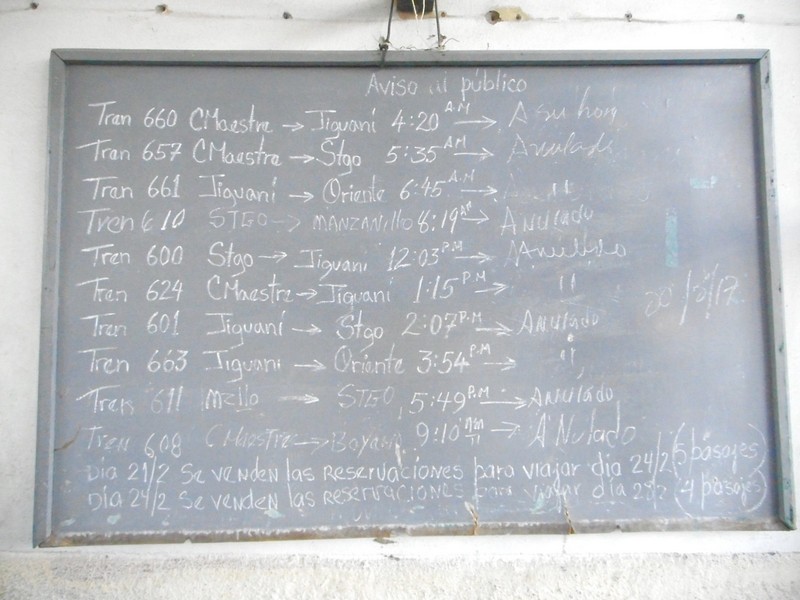 Aviso al público
Tren 660 CMaestre → Jiguaní 4:20 AM → A su hora
Tren 657 CMaestre → Stgo 5:35 AM → Anulado
Tren 661 Jiguaní → Oriente 6:45 A.M → "
Tren 610 STGO → MANZANillo 8:19 AM → Anulado
Tren 600 Stgo → Jiguaní 12:03 P.M → Anulado
Tren 624 CMaestre → Jiguaní 1:15 P.M → "
Tren 601 Jiguaní → Stgo 2:07 P.M → Anulado
Tren 663 Jiguaní → Oriente 3:54 P.M → "
Tren 611 Mella → STGO 5:49 P.M → ANulado
Tren 608 CMaestre → Bayamo 9:10 → ANulado
Dia 21/2 Se venden las reservaciones para viajar dia 24/2 (5 pasajes)
Dia 24/2 Se venden las reservaciones para viajar dia (4 pasajes)